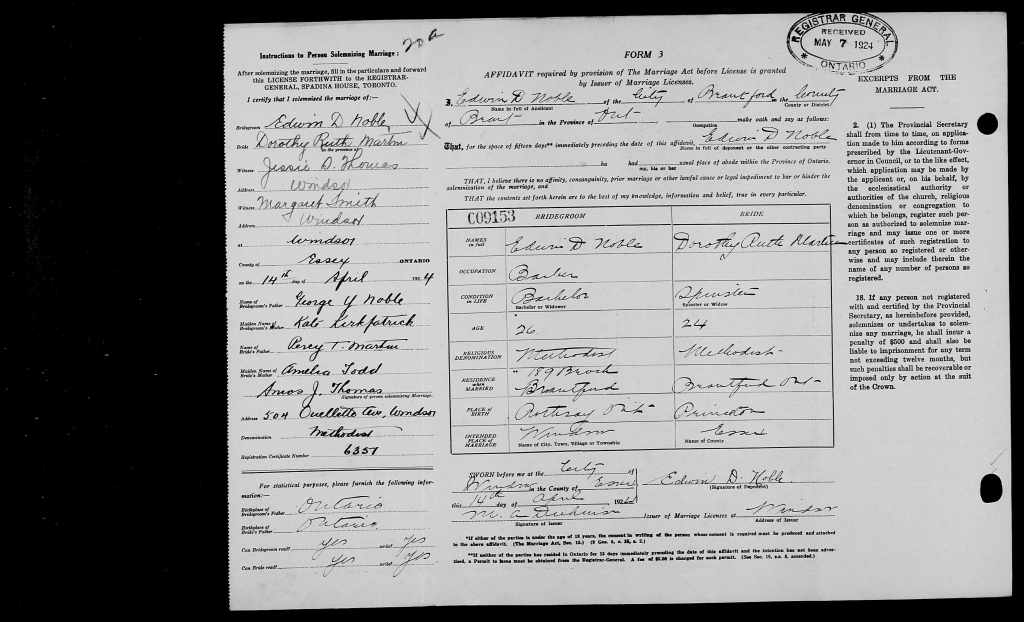 20a
Instructions to Person Solemnizing Marriage:
After solemnizing the marriage, fill in the particulars and forward
this LICENSE FORTHWITH to the REGISTRAR-
GENERAL, SPADINA HOUSE, TORONTO.
I certify that I solemnized the marriage of:—
Bridegroom Edwin D Noble
Bride Dorothy Ruth Martin
in the presence of
Witness Jessie D. Thomas
Address Windsor
Witness Margaret Smith
Address Windsor
at Windsor
County of Essex ONTARIO
on the 14th day of April 1924
Name of Bridegroom's Father George Y Noble
Maiden Name of Bridegroom's Mother Kate Kirkpatrick
Name of Bride's Father Percy T. Martin
Maiden Name of Bride's Mother Amelia Todd
Amos J. Thomas
Signature of person solemnizing Marriage.
Address 504 Ouellette Ave, Windsor
Denomination Methodist
Registration Certificate Number 6351
For statistical purposes, please furnish the following infor-
mation:—
Birthplace of Bridegroom's Father Ontario
Birthplace of Bride's Father Ontario
Can Bridegroom read? yes write? yes
Can Bride read? yes write? yes
FORM 3
AFFIDAVIT required by provision of The Marriage Act before License is granted
by Issuer of Marriage Licenses.
I, Edwin D Noble of the City of Brantford in the County
Name in full of Applicant County or District
of Brant in the Province of Ont make oath and say as follows:
Occupation
That, for the space of fifteen days** immediately preceding the date of this affidavit, Edwin D Noble
Name in full of deponent or the other contracting party
ha had usual place of abode within the Province of Ontario.
my, his or her
THAT, I believe there is no affinity, consanguinity, prior marriage or other lawful cause or legal impediment to bar or hinder the
solemnization of the marriage, and
THAT the contents set forth herein are to the best of my knowledge, information and belief, true in every particular.
C09153 BRIDEGROOM BRIDE
NAMES in full Edwin D Noble Dorothy Ruth Martin
OCCUPATION Barber
CONDITION IN LIFE Bachelor Spinster
Bachelor or Widower Spinster or Widow
AGE 26 24
RELIGIOUS DENOMINATION Methodist Methodist
RESIDENCE when MARRIED 189 Brock Brantford Brantford Ont
PLACE OF BIRTH Rothsay Ont Princeton
INTENDED PLACE OF MARRIAGE Windsor Essex
Name of City, Town, Village or Township Name of County
SWORN before me at the City of
Windsor in the County of Essex Edwin D. Noble
(Signature of Deponent)
this 14th day of April 1924
Issuer of Marriage Licenses at Windsor
Signature of Issuer Address of Issuer
*If either of the parties is under the age of 18 years, the consent in writing of the person whose consent is required must be produced and attached
to the above affidavit. (The Marriage Act, Sec. 15.)
**If neither of the parties has resided in Ontario for 15 days immediately preceding the date of this affidavit and the intention has not been adver-
tised, a Permit to Issue must be obtained from the Registrar-General. A fee of $5.00 is charged for such permit.
REGISTRAR GENERAL
RECEIVED
MAY 7 1924
ONTARIO
EXCERPTS FROM THE
MARRIAGE ACT.
2. (1) The Provincial Secretary
shall from time to time, on applica-
tion made to him according to forms
prescribed by the Lieutenant-Gov-
ernor in Council, or to the like effect,
which application may be made by
the applicant or, on his behalf, by
the ecclesiastical authority or
authorities of the church, religious
denomination or congregation to
which he belongs, register such per-
son as authorized to solemnize mar-
riage and may issue one or more
certificates of such registration to
any person so registered or other-
wise and may include therein the
name of any number of persons so
registered.
18. If any person not registered
with and certified by the Provincial
Secretary, as hereinbefore provided,
solemnizes or undertakes to solem-
nize any marriage, he shall incur a
penalty of $500 and shall also be
liable to imprisonment for any term
not exceeding twelve months, but
such penalties shall be recoverable or
imposed only by action at the suit
of the Crown.